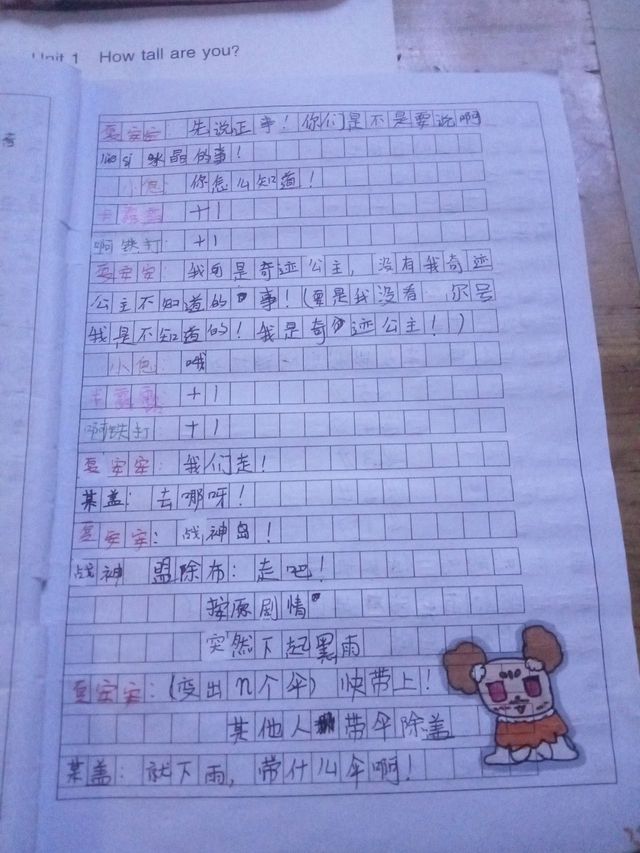 Unit 1 How tall are you?
夏安安：先说正事！你们是不是要说啊
水晶的事！
小包：你怎么知道！
+1
啊铁打：+1
夏安安：我可是奇迹公主，没有我奇迹
公主不知道的事！(要是我没看 尔号
我是不知道的！我是奇迹公主！)
小包：哦
+1
啊铁打：+1
夏安安：我们走！
某盖：去哪呀！
夏安安：战神岛！
战神 盟除布：走吧！
按原剧情
突然下起黑雨
夏安安：(变出n个伞)快带上！
其他人带伞除盖
某盖：就下雨，带什么伞啊！